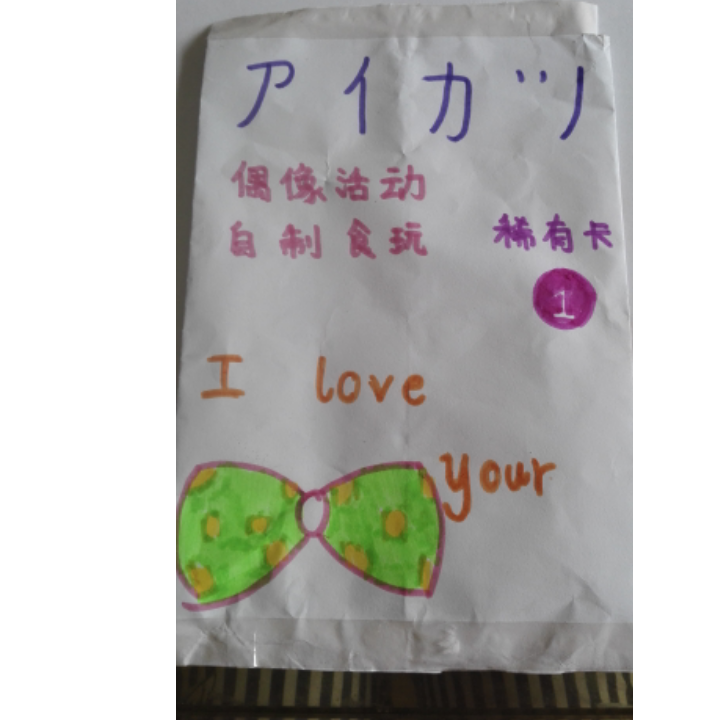 アイカツ
偶像活动
自制食玩 稀有卡
1
I love
your